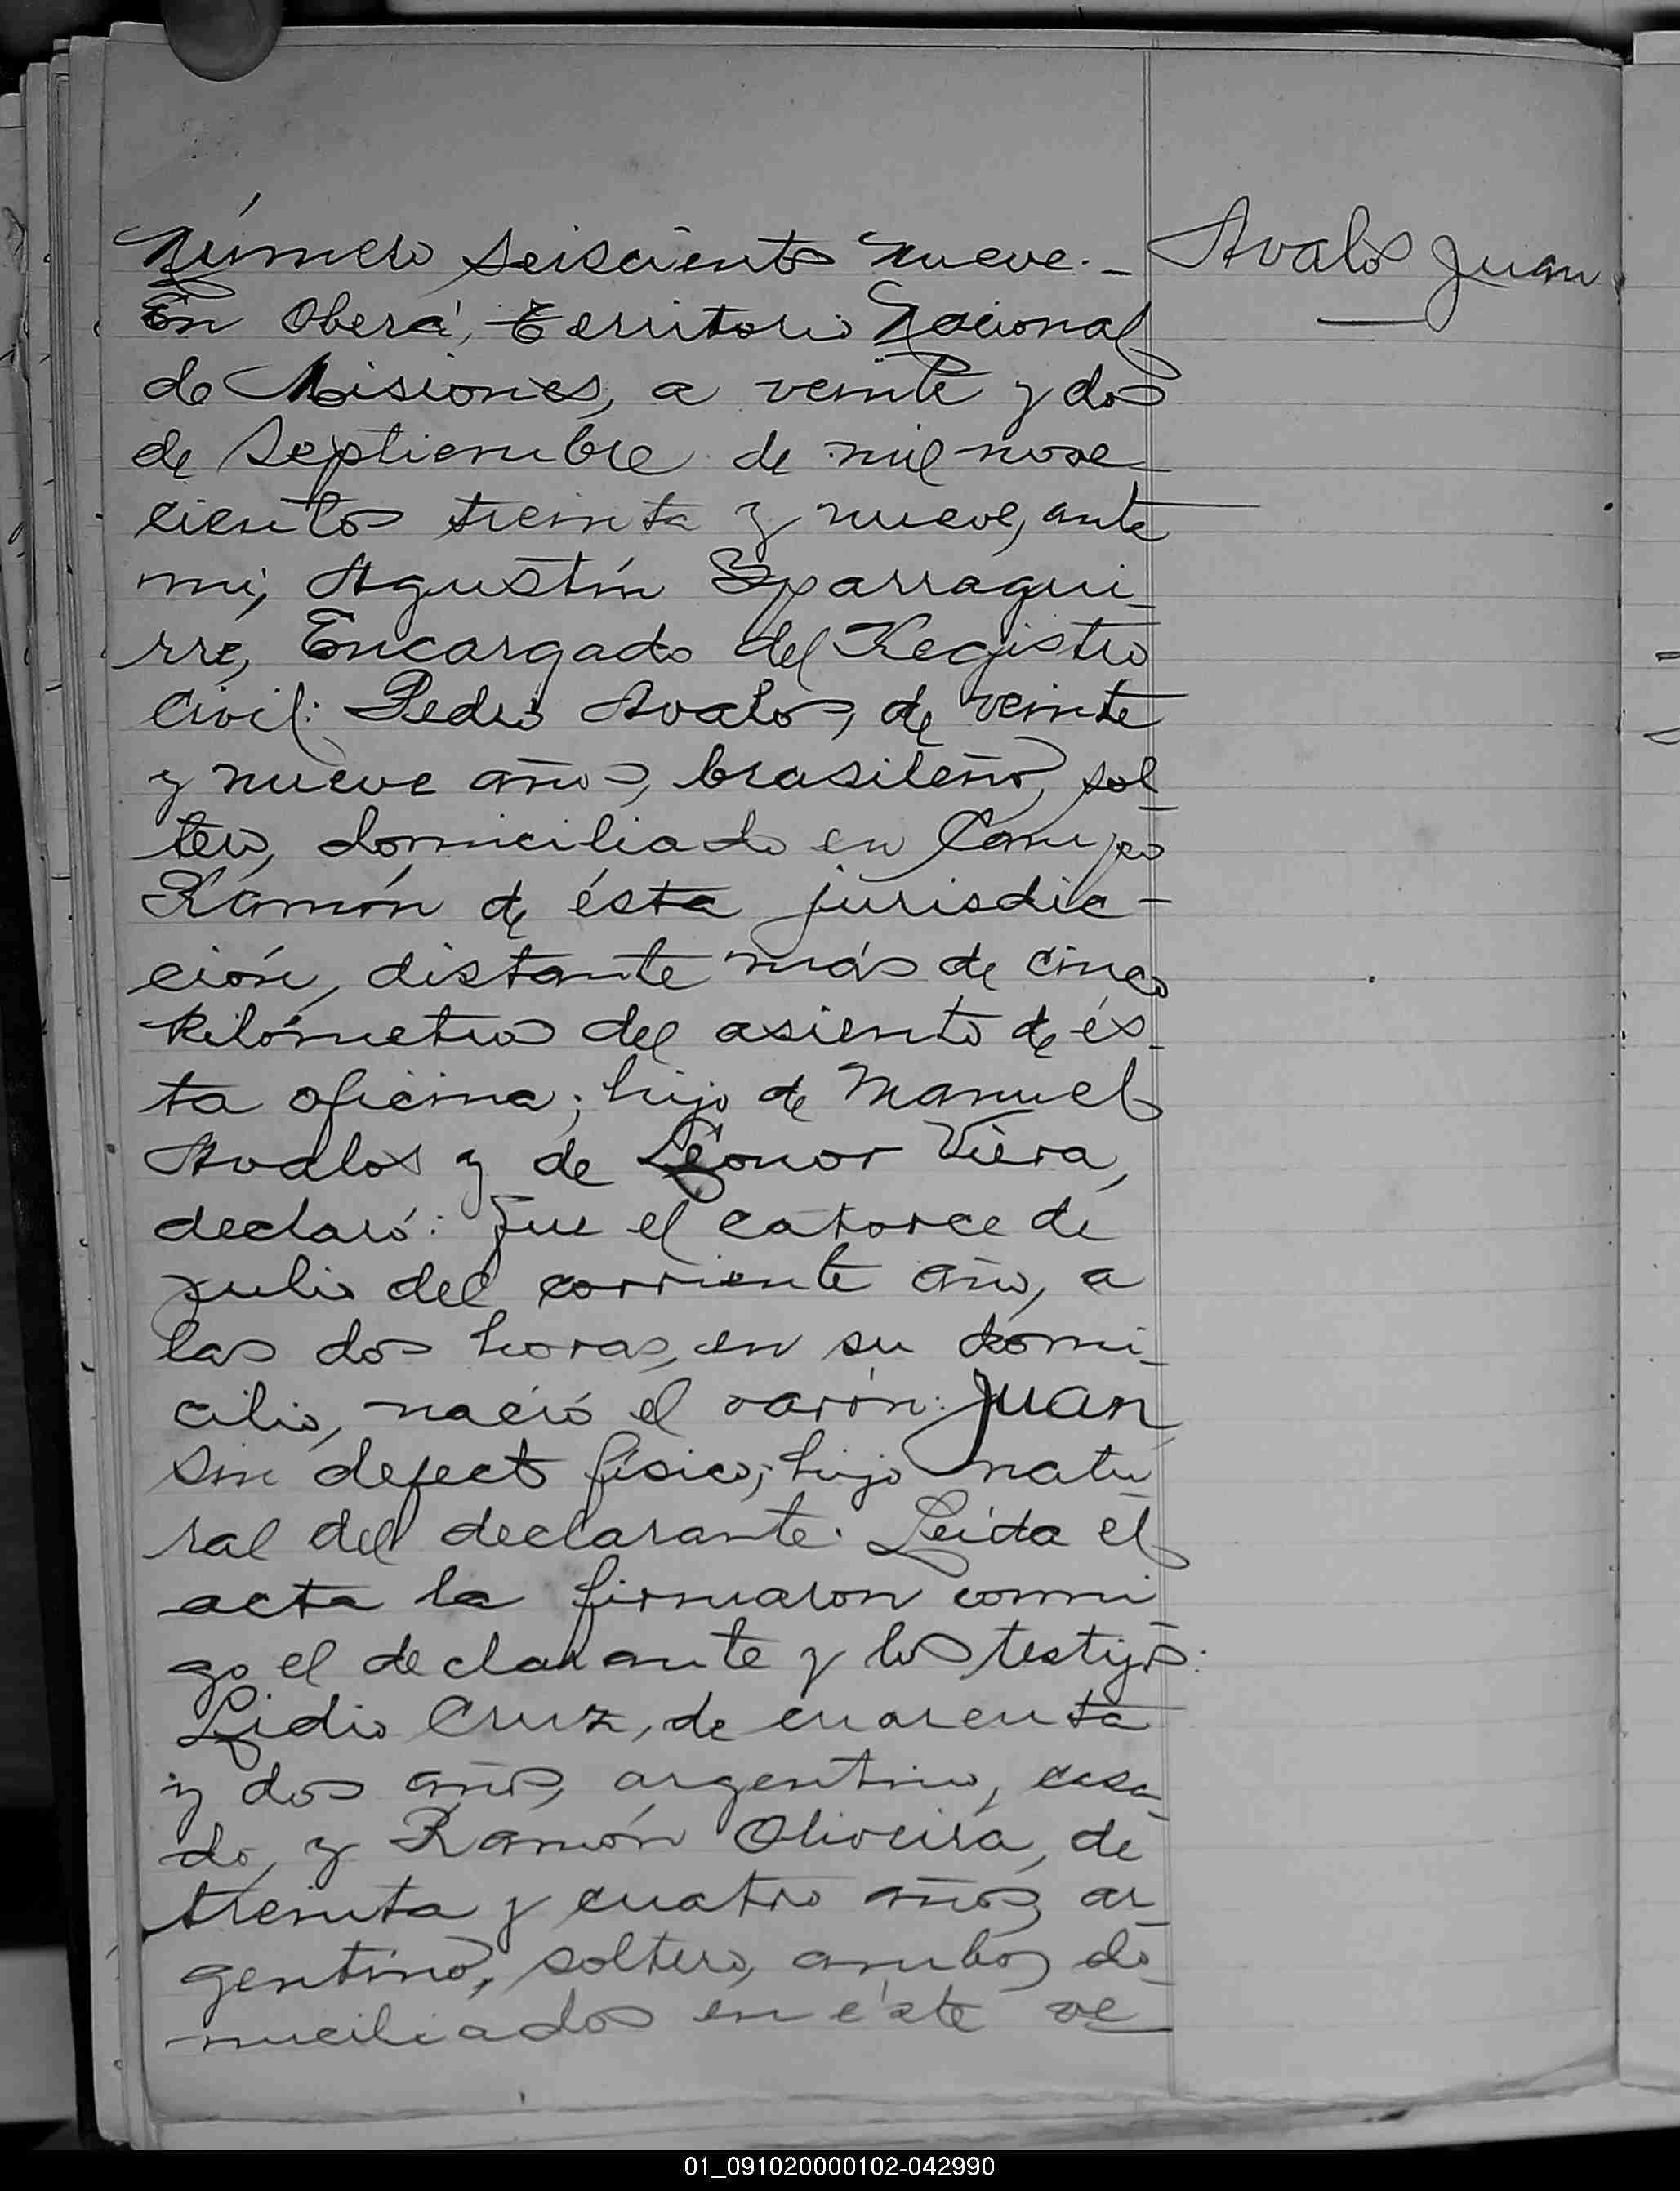 Número seiscientos nueve.-
Avalos Juan
En Oberá, Territorio Nacional
de Misiones, a veinte y dos
de Septiembre de mil nove
cientos treinta y nueve, ante
mi, Agustín Yparragui-
rre, Encargado del Registro
Civil: Pedro Avalos, de veinte
y nueve años, brasileño, sol-
tero, domiciliado en Campo
Ramón de ésta jurisdic-
ción, distante más de cinco
kilómetros del asiento de és-
ta oficina; hijo de Manuel
Avalos y de Leonor Viera,
declaró: Que el catorce de
Julio del corriente año, a
las dos horas, en su domi-
cilio, nació el varón: Juan,
sin defecto físico; hijo natu-
ral del declarante. Leída el
acta la firmaron conmi-
go el declarante y los testigos:
Lidio Cruz, de cuarenta
y dos años, argentino, casa-
do, y Ramón Oliveira, de
treinta y cuatro años, ar-
gentino, soltero, ambos do-
miciliados en éste ve-
01_091020000102-042990